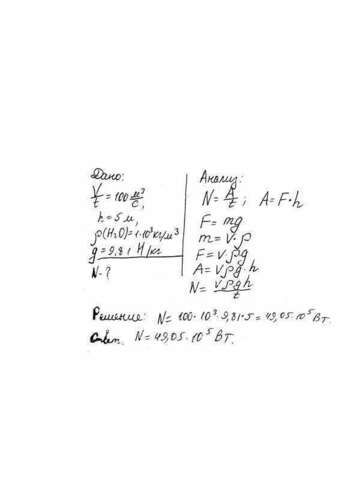 Дано:
V/t = 100 м³/с,
h = 5 м,
ρ(H₂O) = 1·10³ кг/м³
g = 9,81 Н/кг
N - ?
Анализ:
N = A/t; A = F·h
F = mg
m = V·ρ
F = Vρg
A = Vρg·h
N = Vρgh/t
Решение: N = 100·10³·9,81·5 = 49,05·10⁵ Вт.
Ответ. N = 49,05·10⁵ Вт.